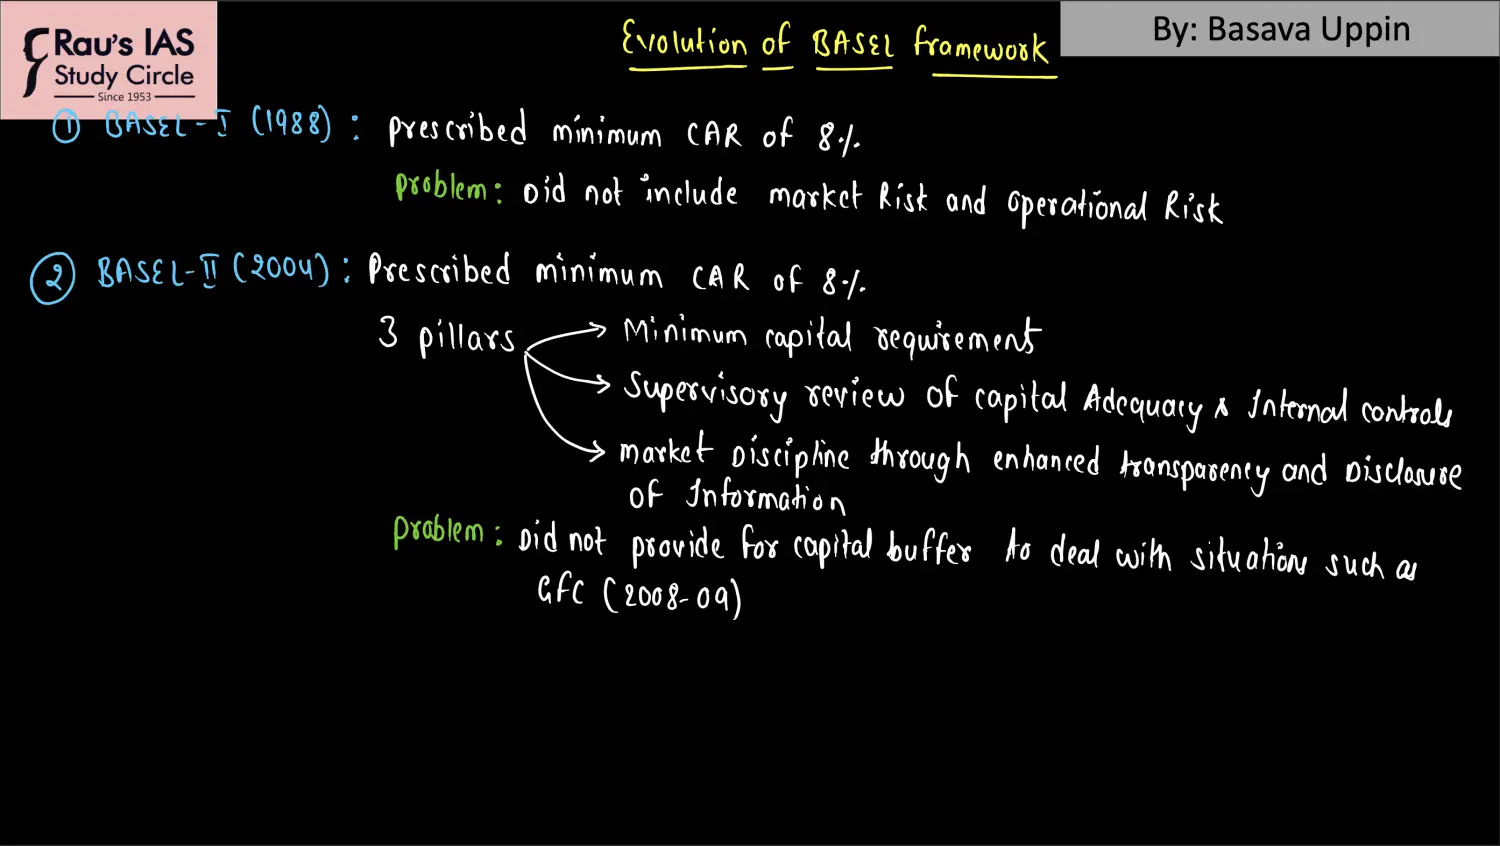 Rau's IAS
Study Circle
Since 1953
By: Basava Uppin
Evolution of BASEL framework
① BASEL-I (1988) : Prescribed minimum CAR of 8%.
Problem: Did not include market Risk and operational Risk
② BASEL-II (2004) : Prescribed minimum CAR of 8%.
3 pillars → Minimum capital requirement
→ Supervisory review of capital Adequacy & Internal controls
→ market Discipline through enhanced transparency and Disclosure
of Information
Problem: Did not provide for capital buffer to deal with situations such as
GFC (2008-09)